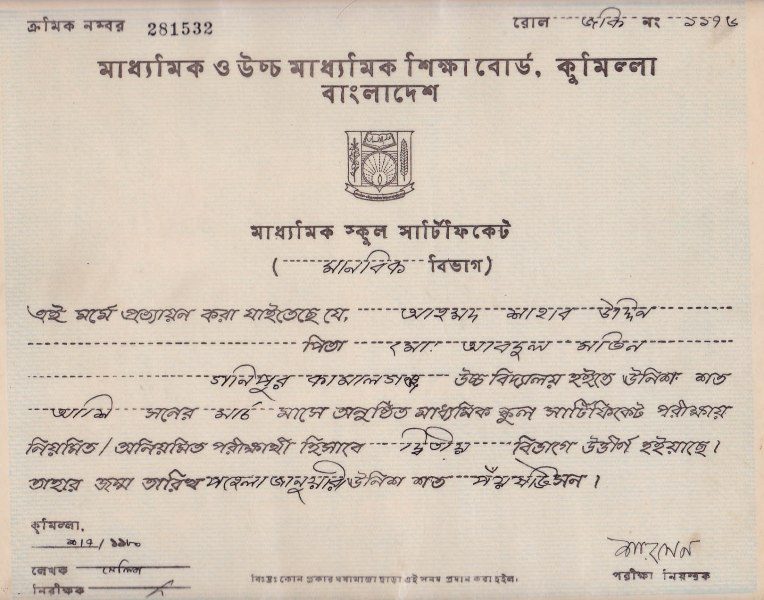 ক্রমিক নম্বর 281532
রোল জকি নং ১১৭৬
মাধ্যমিক ও উচ্চ মাধ্যমিক শিক্ষা বোর্ড, কুমিল্লা
বাংলাদেশ
মাধ্যমিক স্কুল সার্টিফিকেট
( মানবিক বিভাগ )
এই মর্মে প্রত্যায়ন করা যাইতেছে যে, আহমদ শাহাব উদ্দিন
পিতা মো: আবদুল মতিন
গনিপুর কামালগঞ্জ উচ্চ বিদ্যালয় হইতে উনিশ শত
আশি সনের মার্চ মাসে অনুষ্ঠিত মাধ্যমিক স্কুল সার্টিফিকেট পরীক্ষায়
নিয়মিত/অনিয়মিত পরীক্ষার্থী হিসাবে দ্বিতীয় বিভাগে উত্তীর্ণ হইয়াছে।
তাহার জন্ম তারিখ পহেলা জানুয়ারী উনিশ শত পঁয়ষট্টি সন।
কুমিল্লা,
লেখক
নিরীক্ষক
পরীক্ষা নিয়ন্ত্রক
বিঃদ্রঃ কোন প্রকার ঘষামাজা ছাড়া এই সনদ প্রদান করা হইল।